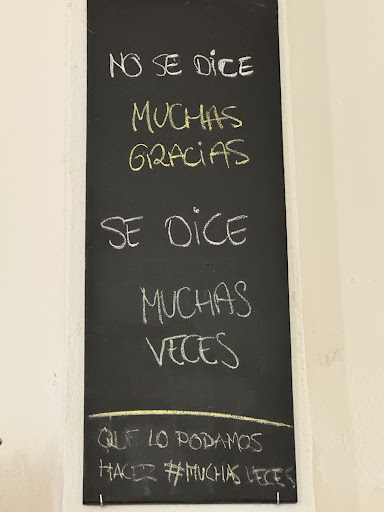 NO SE DiCE
MUCHAS
GRACiAS
SE DiCE
MUCHAS
VECES
QUE LO PODAMOS
HACER #MUCHAS VECES